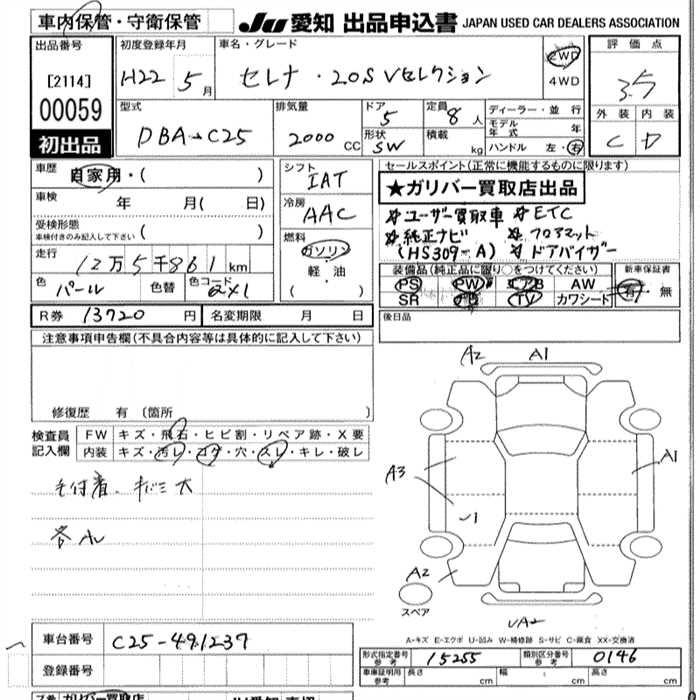 車内保管・守衛保管
JU 愛知 出品申込書 JAPAN USED CAR DEALERS ASSOCIATION
出品番号
[2114]
00059
初出品
初度登録年月
H22 5月
車名・グレード
セレナ・20S Vセレクション
2WD
4WD
評価点
3.5
外装 内装
C D
型式
DBA-C25
排気量
2000 CC
ドア
5
形状
SW
定員
8人
積載
kg
ディーラー・並行
モデル年式 年
ハンドル 左・右
車歴
自家用・( )
車検 年 月( 日)
受検形態
車検付きのみ記入して下さい ( )
走行
12万5千861 km
色
パール
色替
色コード
QX1
シフト
IAT
冷房
AAC
燃料
ガソリン
軽・油
( )
セールスポイント(正常に機能するものに限ります)
★ガリバー買取店出品
☆ユーザー買取車 ☆ETC
☆純正ナビ ☆フロアマット
(HS309-A) ☆ドアバイザー
装備品(純正品に限り○をつけてください)
PS PW エアB AW
SR TV カワシート
新車保証書
有・無
R券 13720円
名変期限 月 日
後日品
注意事項申告欄(不具合内容等は具体的に記入して下さい)
修復歴 有〔箇所 〕
検査員記入欄
FW キズ・飛石・ヒビ割・リペア跡・X要
内装 キズ・汚レ・コゲ・穴・スレ・キレ・破レ
A2 A1
A3
A1
A2
スペア
A-キズ E-エクボ U-凹み W-補修跡 S-サビ C-腐食 XX-交換済
車台番号 C25-491237
登録番号
形式指定番号 参考 15255
類別区分番号 参考 0146
車庫証明用 参考 長さ cm 幅 cm 高さ cm
ガリバー買取店